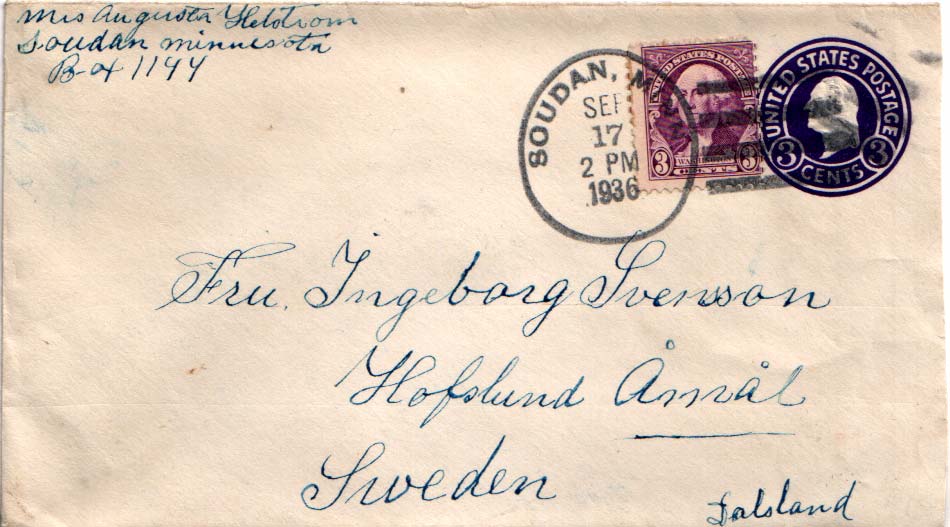 Mrs Augusta Helstrom
Soudan Minnesota
Box 1194
SOUDAN, MINN.
SEP
17
2 PM
1936
UNITED STATES POSTAGE
3 WASHINGTON 3
CENTS
UNITED STATES POSTAGE
3 3
CENTS
Fru. Ingeborg Svensson
Hofslund Åmål
Sweden
Dalsland